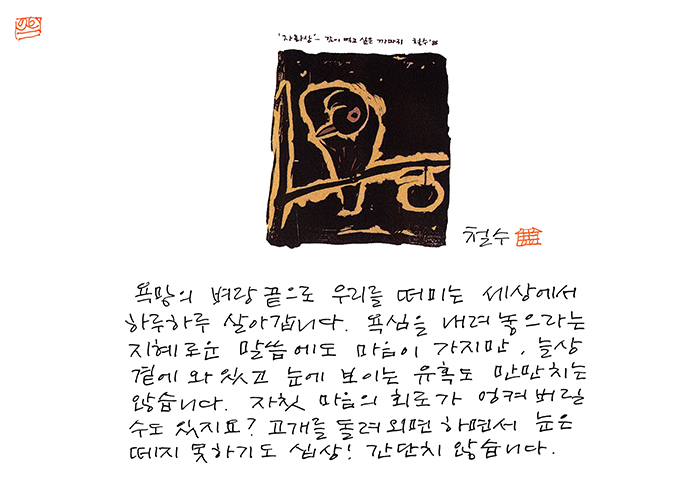 '자화상' - 같이 먹고 싶은 까마귀 철수 '88
철수
욕망의 벼랑 끝으로 우리를 떠미는 세상에서
하루하루 살아갑니다. 욕심을 내려놓으라는
지혜로운 말씀에도 마음이 가지만, 늘상
곁에 와 있고 눈에 보이는 유혹도 만만치는
않습니다. 자칫 마음의 회로가 엉켜 버릴
수도 있지요? 고개를 돌려 외면하면서 눈은
떼지 못하기도 십상! 간단치 않습니다.